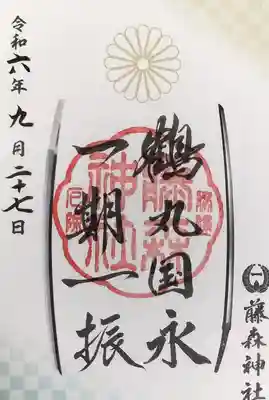 鶴丸国永
一期一振
令和六年 九月二十七日
藤森神社